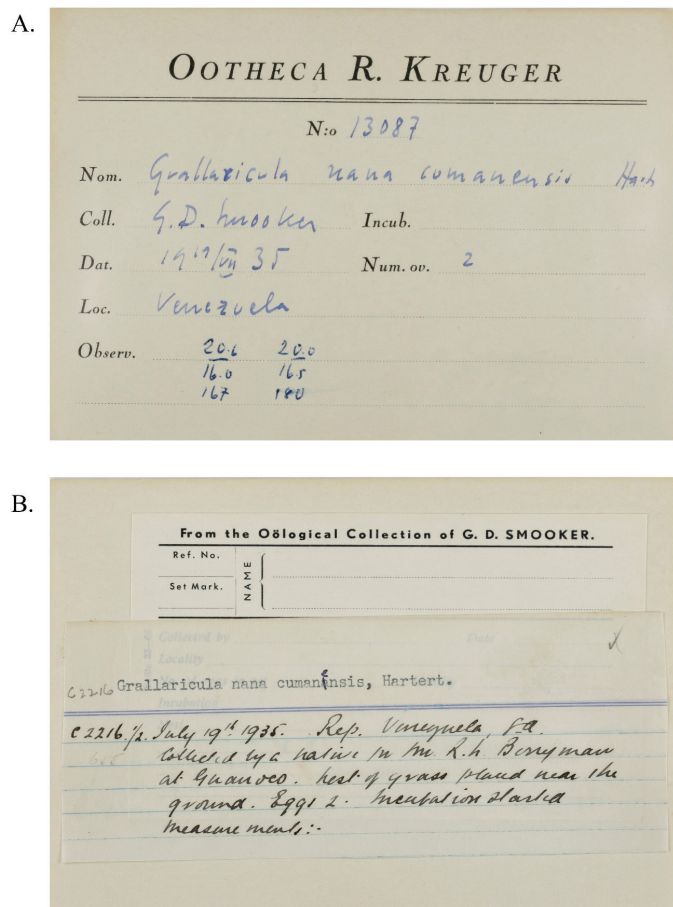 A.
OOTHECA R. KREUGER
N:o 13087
Nom. Grallaricula nana cumanensis Hart
Coll. G.D. Smooker Incub.
Dat. 19 19/VII 35 Num. ov. 2
Loc. Venezuela
Observ. 20.1 20.0
16.0 16.5
167 180
B.
From the Oölogical Collection of G. D. SMOOKER.
Ref. No.
NAME
Set Mark.
Collected by Date
Locality
Incubation
C2216 Grallaricula nana cumanensis, Hartert.
C2216 1/2. July 19th 1935. Rep. Venezuela, S.A.
Collected by a native for Mr. R.h. Berryman
at Guanoco. Nest of grass placed near the
ground. Eggs 2. Incubation started
Measurements:-